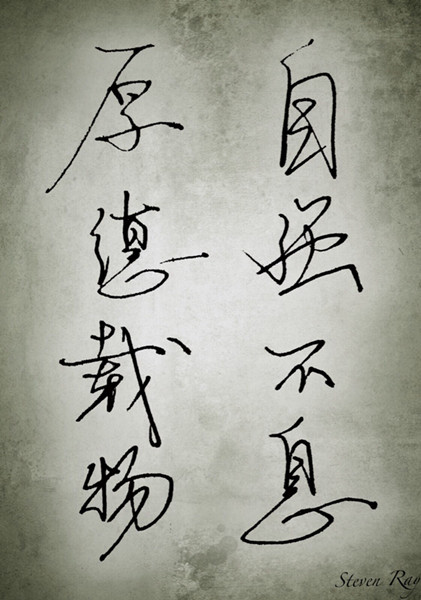 自强不息
厚德载物
Steven Ray